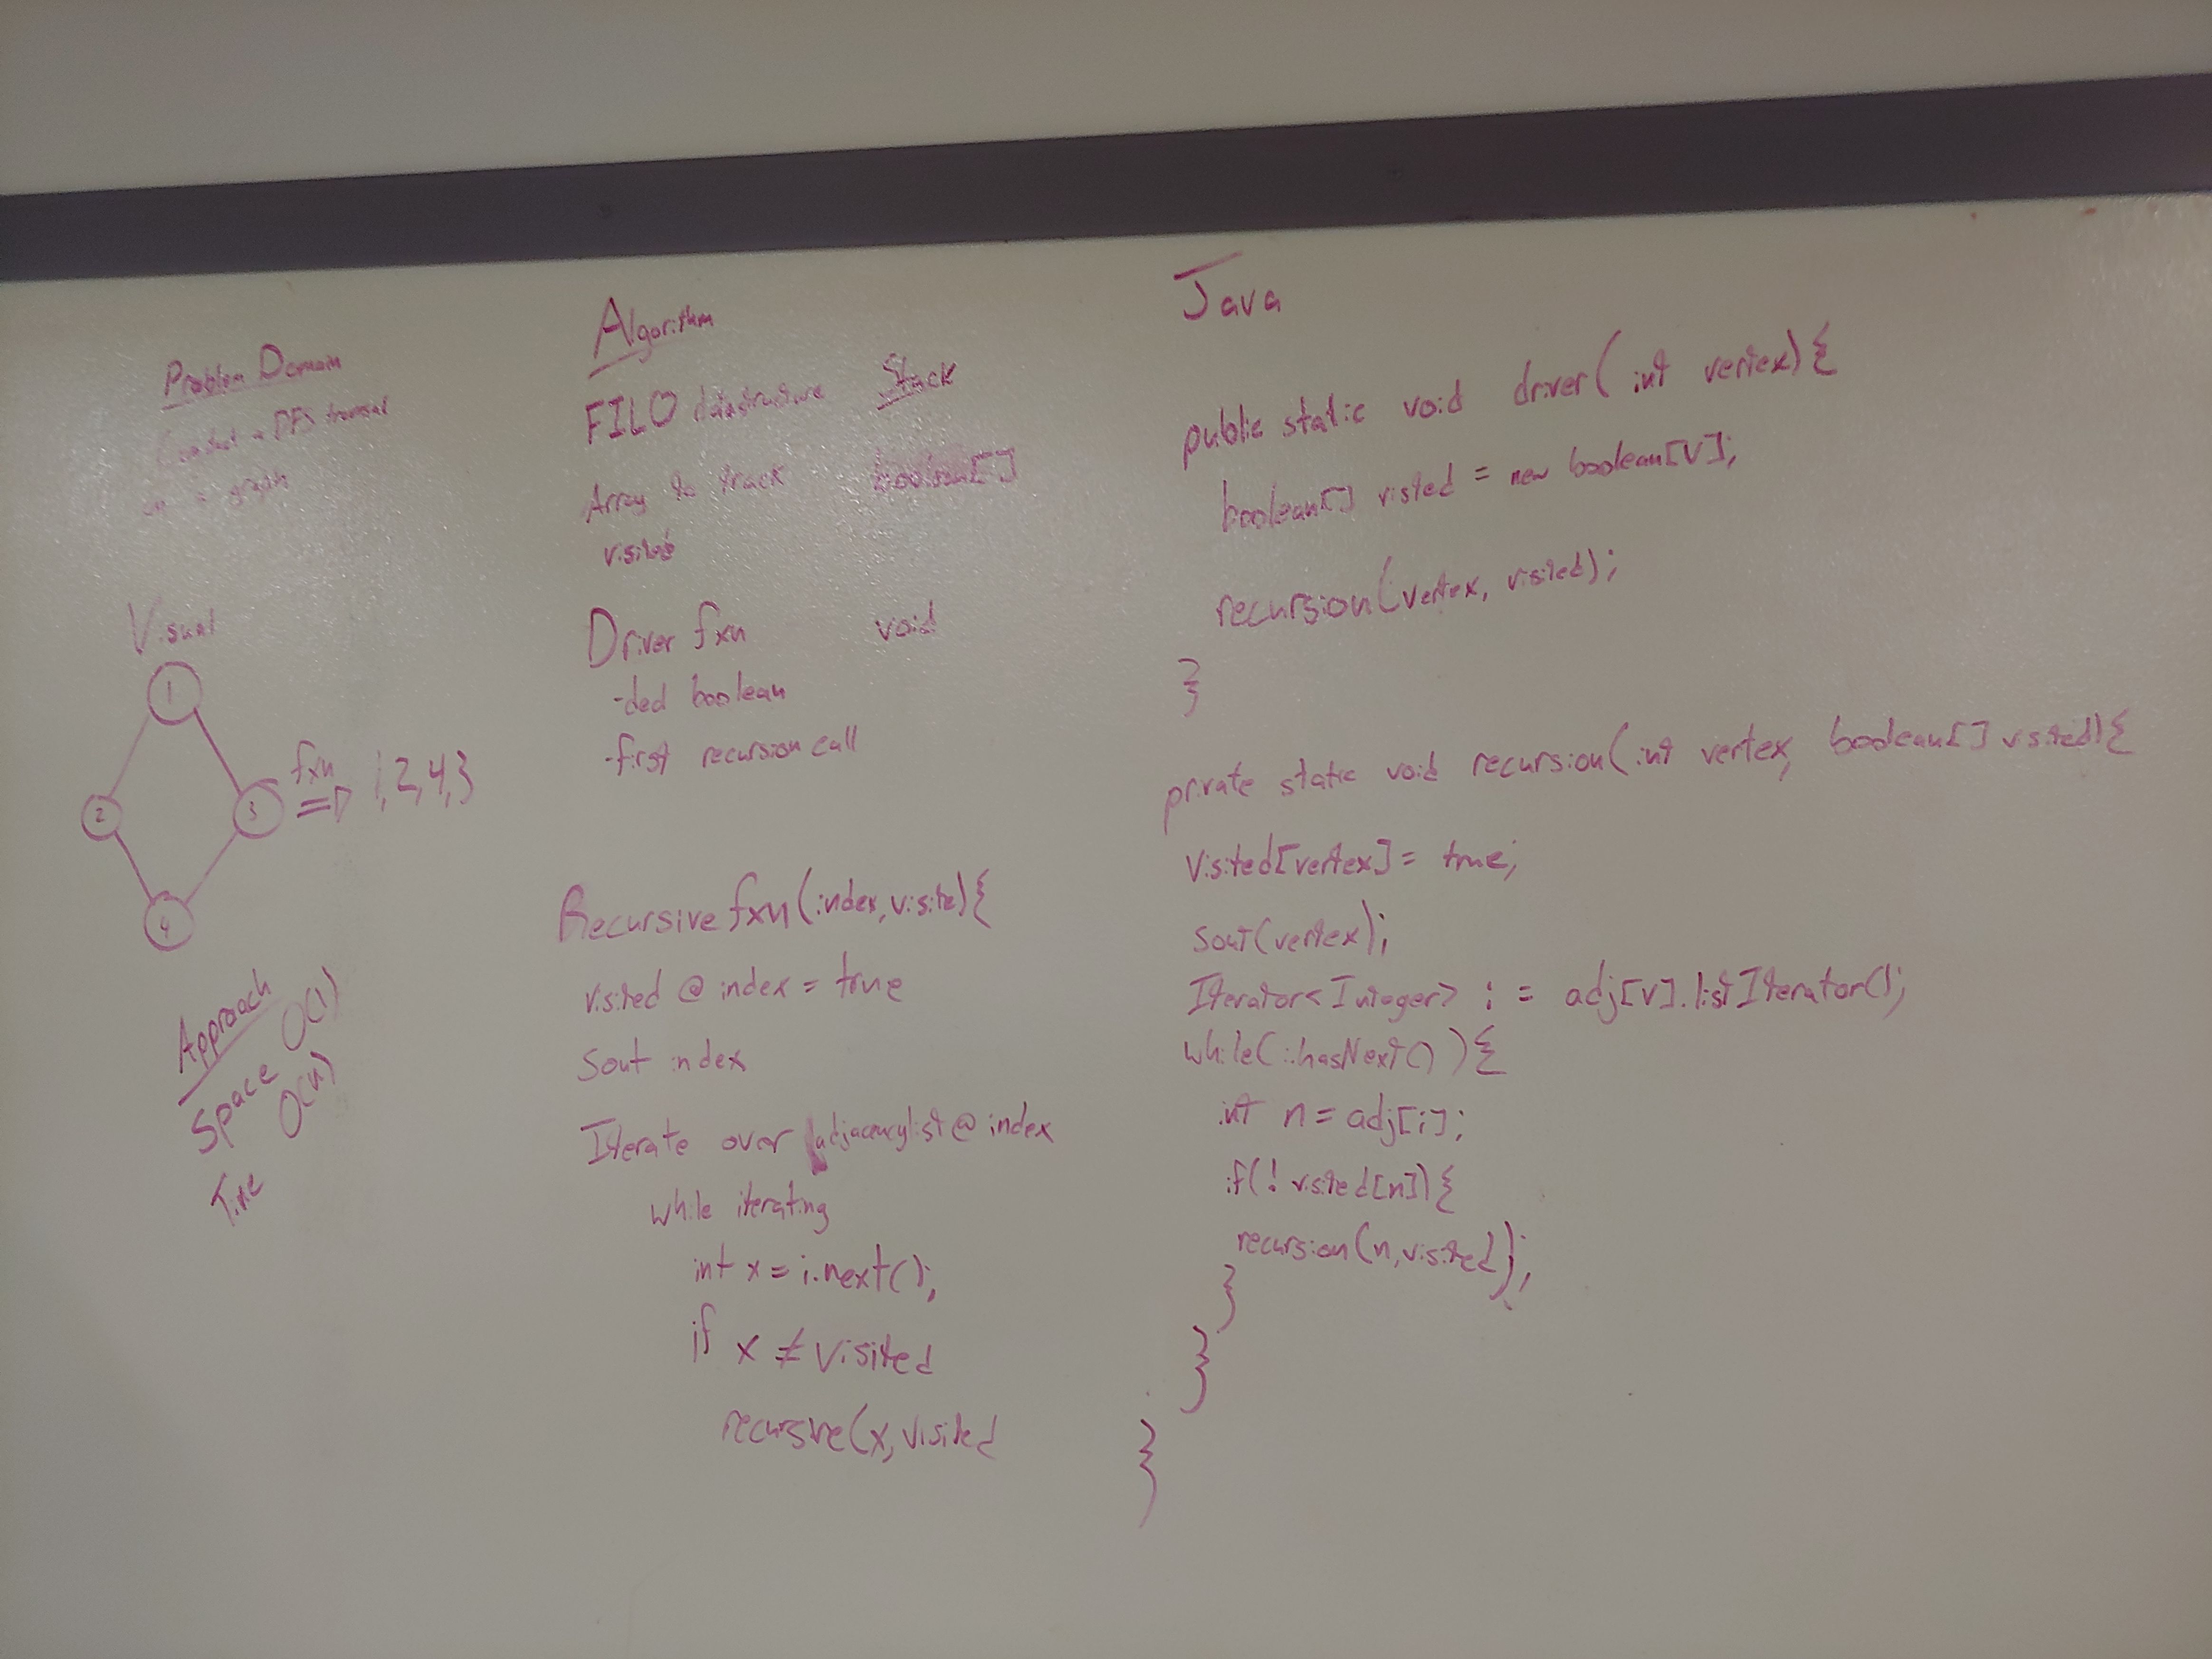 Problem Domain
Conduct a DFS traversal
on a graph
Visual
1
2
3
4
fxn
=> 1,2,4,3
Approach
Space O(1)
Time O(n)
Algorithm
FILO datastructure Stack
Array to track boolean[]
visited
Driver fxn void
- boolean
-first recursion call
Recursive fxn(index, visite){
visited @ index = true
Sout index
Iterate over adjacencylist @ index
while iterating
int x = i.next();
if x ≠ visited
recursive(x, visited
Java
public static void driver(int vertex){
boolean[] visted = new boolean[V];
recursion(vertex, visited);
}
private static void recursion(int vertex, boolean[] visited){
Visited[vertex] = true;
sout(vertex);
Iterator<Integer> i = adj[v].listIterator();
while(i.hasNext()){
int n = adj[i];
if(! visited[n]){
recursion(n, visited);
}
}
}